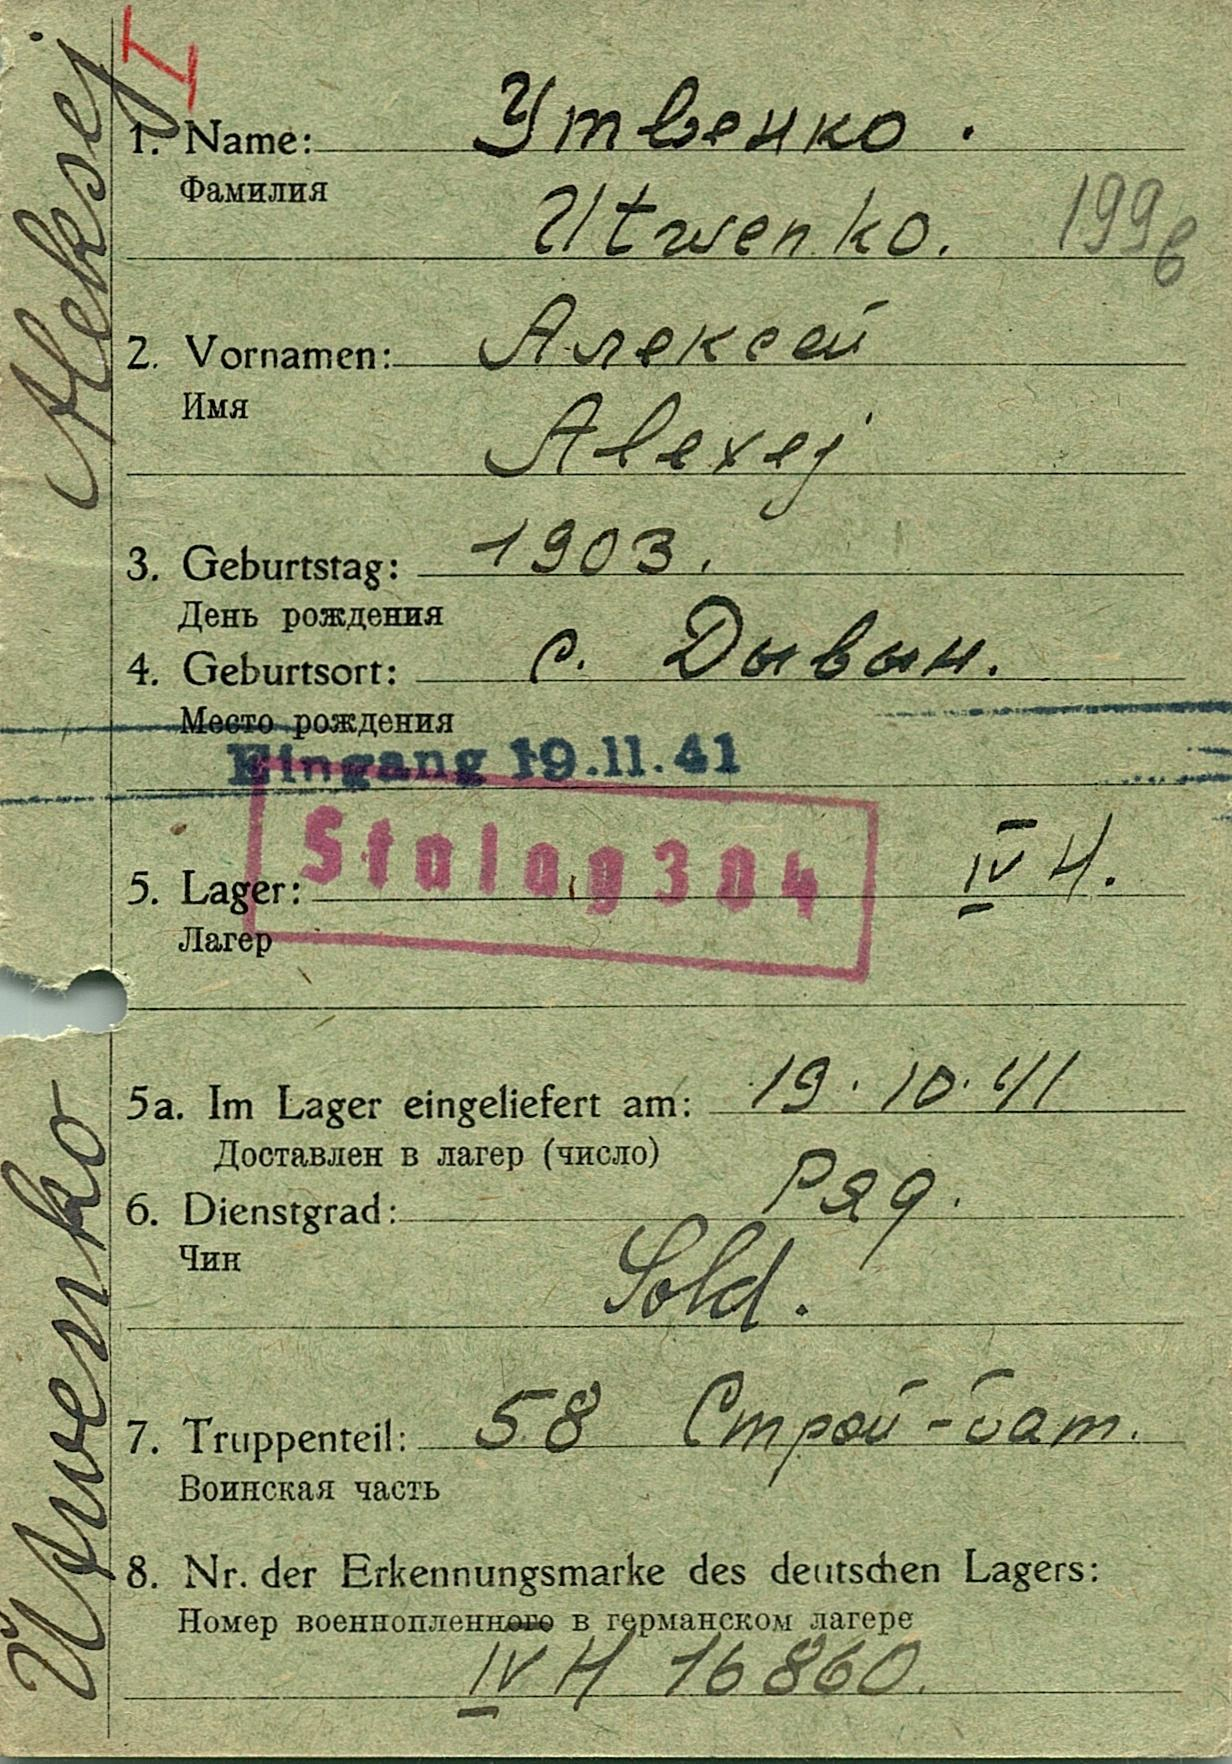 I
1. Name: Утвенко.
Фамилия
Utwenko. 199
2. Vornamen: Алексей
Имя
Alexej
3. Geburtstag: 1903.
День рождения
4. Geburtsort: с. Дывын.
Место рождения
Eingang 19.11.41
Stalag 304
5. Lager: IV H.
Лагер
5a. Im Lager eingeliefert am: 19. 10. 41
Доставлен в лагер (число)
6. Dienstgrad: Ряд.
Чин
Sold.
7. Truppenteil: 58 Строй-бат.
Воинская часть
8. Nr. der Erkennungsmarke des deutschen Lagers:
Номер военнопленного в германском лагере
IV H 16860.
Utwenko Aleksej